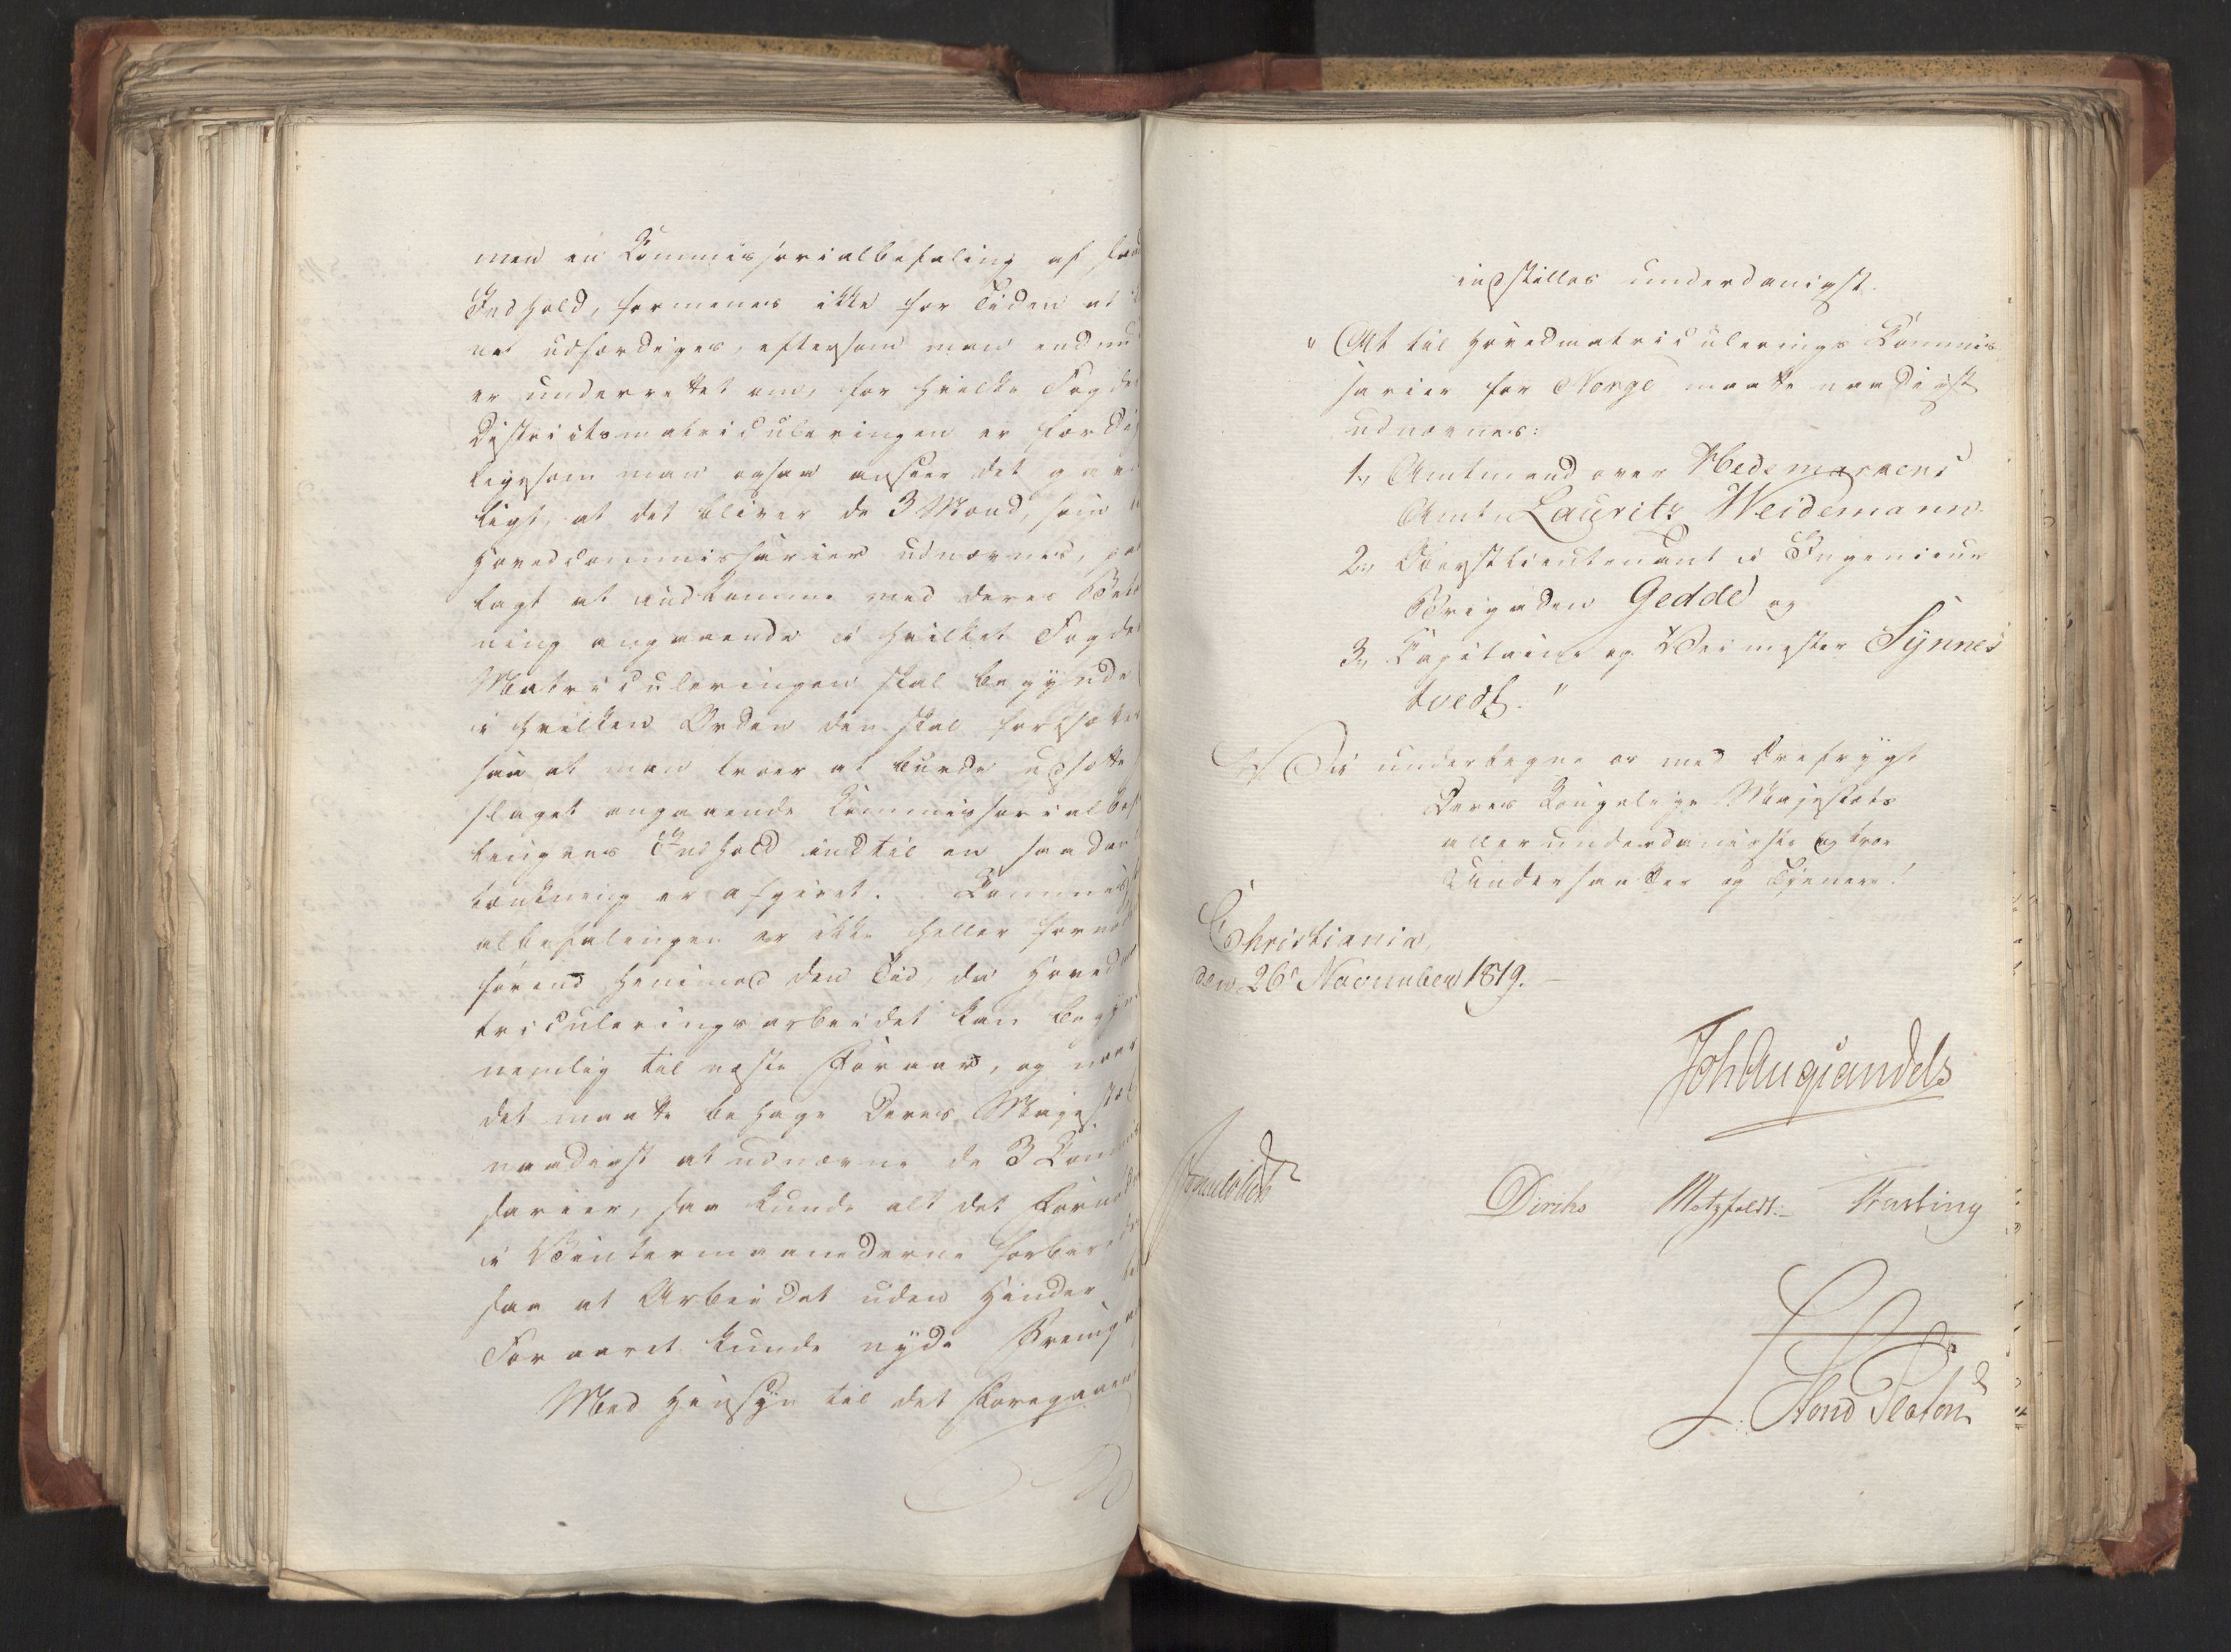 men en Commissorialbefaling af saad
Indhold, formenes ikke for Tiden at
ne udfærdiges, eftersom man endnu
er underrettet om, for hvilke Fogde
districtsmatriculeringen er færdig
ligesom man ogsaa anseer det gav
ligt, at det bliver de 3 Mænd, som
Hovedcommissairer udnævnes, paa
lagt at indkomme med deres Betæ
ning angaaende i hvilket Fogde
Matriculeringen skal begynde
i hvilken Orden den skal fortsættes
saa at man troer at burde udsætte
slaget angaaende Commissorialbef
lingens Indhold indtil en saadan
tænkning er afgivet. Commiss
albefalingen er ikke heller fornød
førend henimod den Tid, da Hovedm
triculeringsarbeidet kan begyn
nemlig til næste Foraar, og naar
det maatte behage Deres Majestæt
naadigst at udnævne de 3 Commis
sarier, saa kunde alt det Fornød
i Vintermaanederne forbered
saa at Arbeidet uden Hinder
Foraaret kunde nyde Fremga
Med Hensyn til det Foregaaen
indstilles underdanigst.
" At til Hovedmatriculerings Commis
sarier for Norge maatte naadigst
udnævnes:
1., Amtmand over Hedemarkens
Amt, Lauritz Weidemann.
2., Oberstlieutenant i Ingenieur
Brigaden Gedde og
3., Capitaine og Veimester Synnes
tvedt. "
Vi undertegne os med Ærefrygt
Deres Kongelige Majestæts
allerunderdanigste og troe
Undersaatter og Tjenere!
Christiania,
den 26de November 1819.-
JohAugSandels
Sommerhielm
Diriks Motzfeldt Fasting
v. Hend Platou